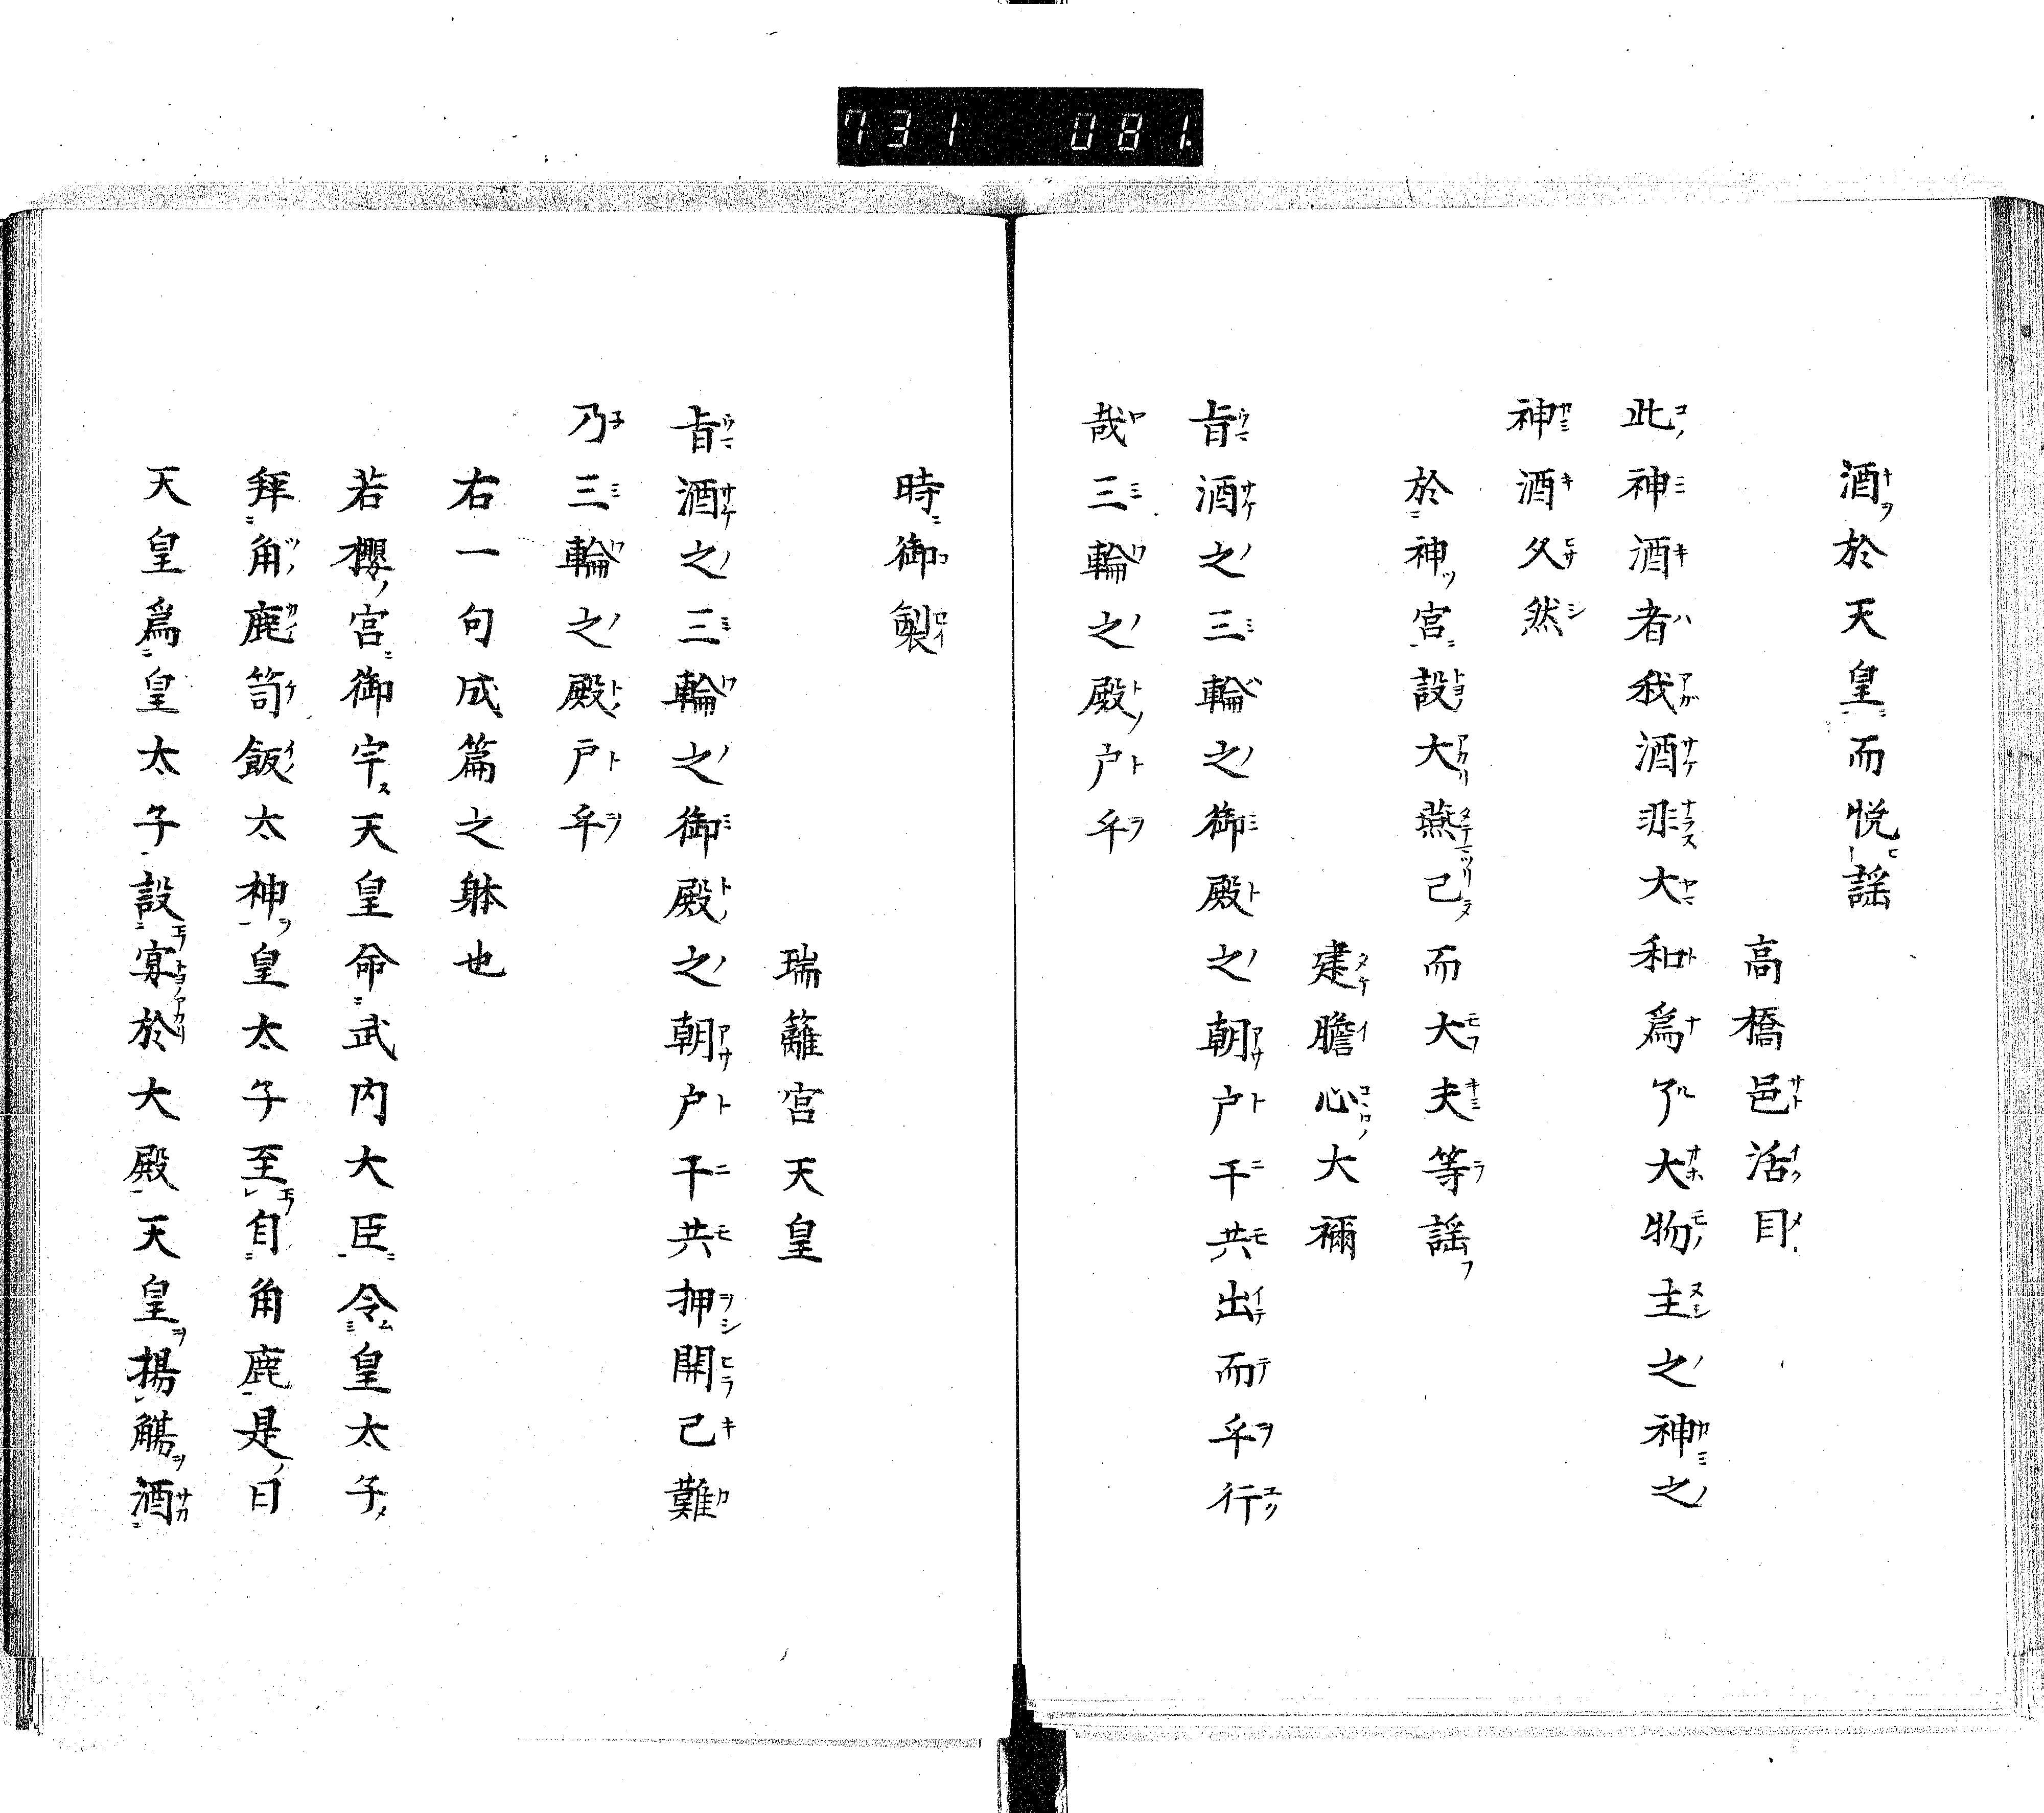 731 081.
酒於天皇而悦謡
高橋邑活目
此神酒者我酒非大和為了大物主之神之
神酒久然
於神宮設大燕己而大夫等謡
建膽心大禰
旨酒之三輪之御殿之朝戸干共出而乎行
哉三輪之殿戸乎
時御製
瑞籬宮天皇
旨酒之三輪之御殿之朝戸干共押開己難
乃三輪之殿戸乎
右一句成篇之躰也
若櫻宮御宇天皇命武内大臣令皇太子
拜角鹿笥飯太神皇太子至自角鹿是日
天皇為皇太子設宴於大殿天皇揚觴酒